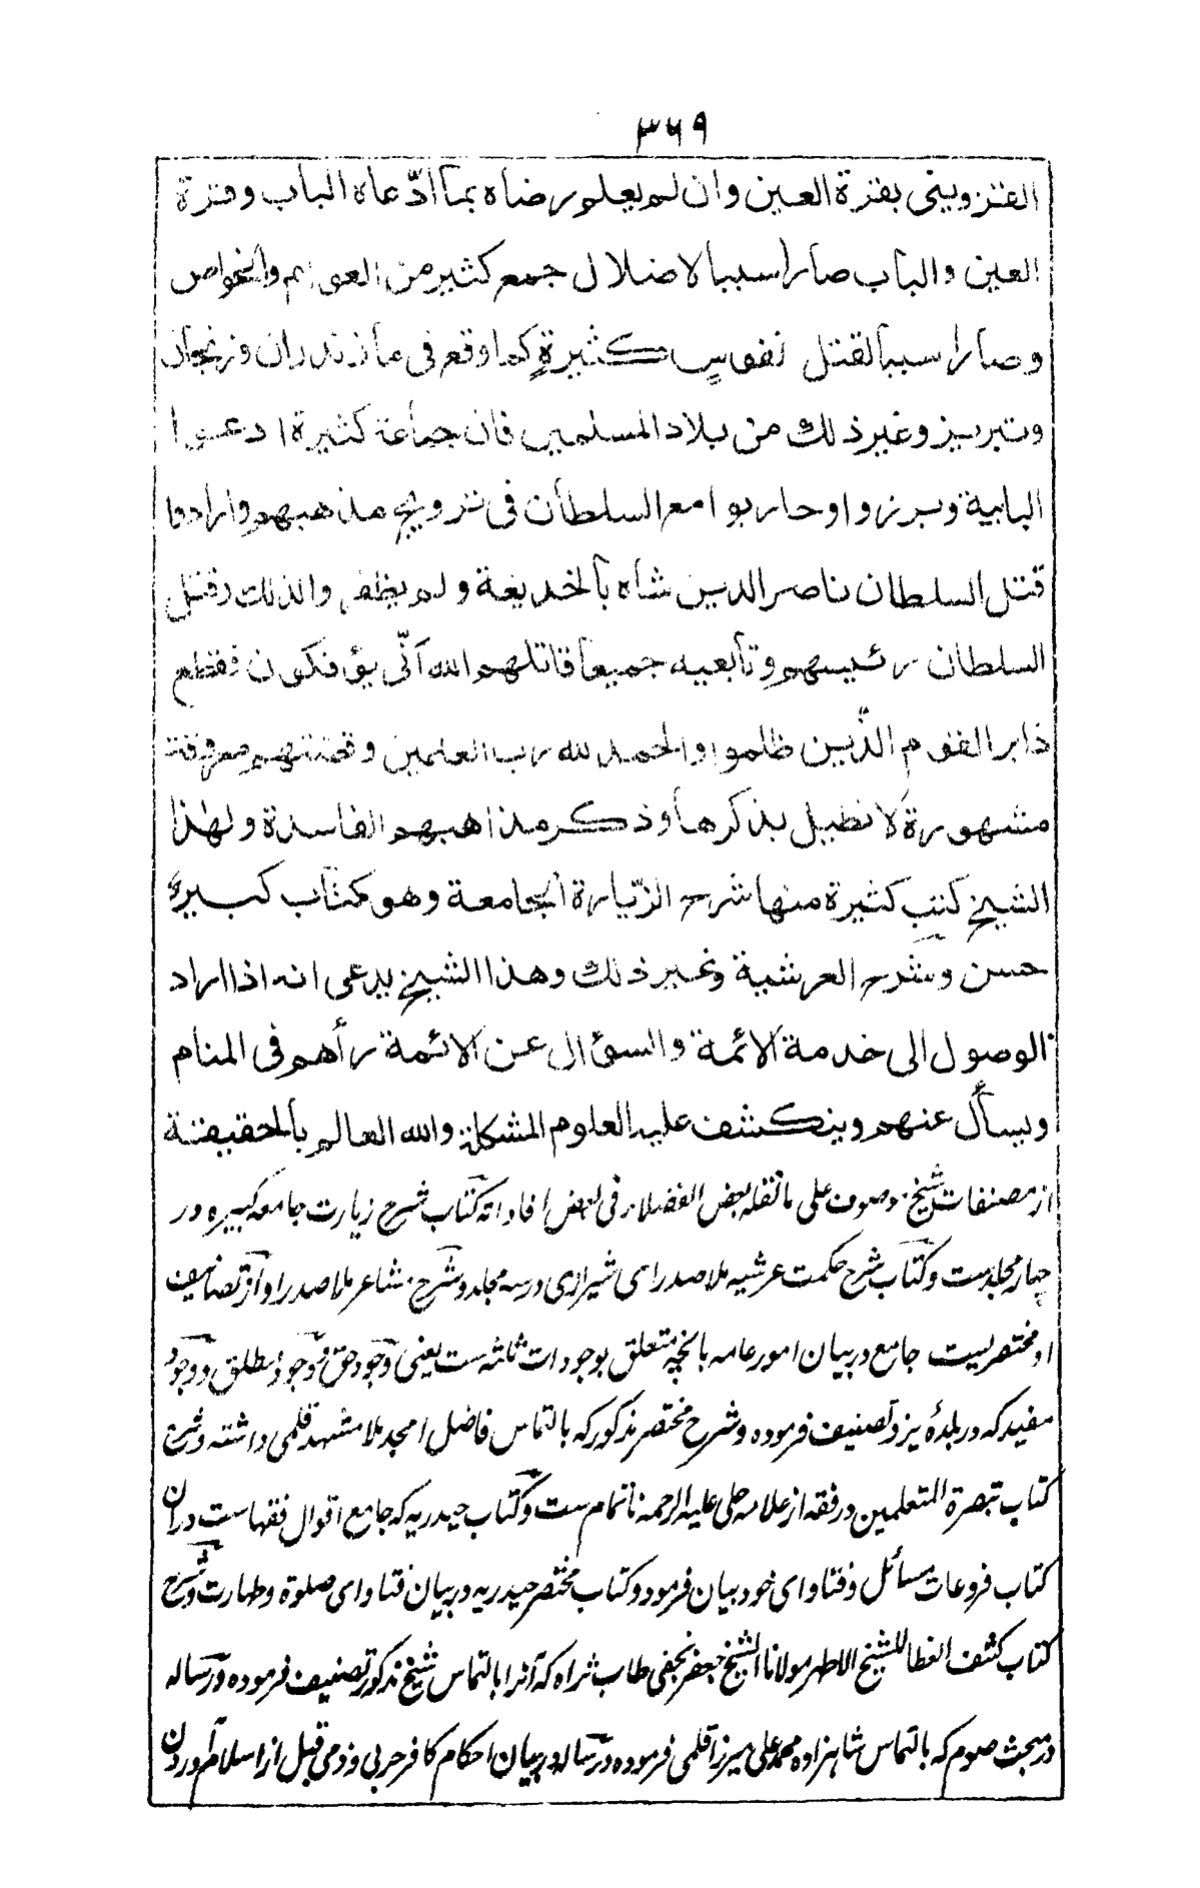 ٣٦٩
القزويني بقرة العين وان لم يعلم رضاه بما ادّعاه الباب وقرة
العين والباب صارا سببا لاضلال جمع كثير من العوام والخواص
وصارا سببا لقتل نفوس كثيرة كما وقع في مازندران وزنجان
وتبريز وغير ذلك من بلاد المسلمين فان جماعة كثيرة ادعوا
البابية وبرزوا وحاربوا مع السلطان في ترويج مذهبهم وارادوا
قتل السلطان ناصر الدين شاه بالخديعة ولم يظفروا لذلك وقتل
السلطان رئيسهم وتابعيه جميعا قاتلهم الله انّى يؤفكون فقطع
دابر القوم الذّين ظلموا والحمد لله رب العلمين وقصتهم معروفة
مشهورة لا نطيل بذكرها وذكر مذاهبهم الفاسدة ولهذا
الشيخ كتب كثيرة منها شرح الزّيارة الجامعة وهو كتاب كبير
حسن وشرح العرشية وغير ذلك وهذا الشيخ يدعى انه اذا اراد
الوصول الى خدمة الائمة والسؤال عن الائمة رأهم في المنام
ويسأل عنهم وينكشف عليه العلوم المشكلة والله العالم بالحقيقة
از مصنفات شيخ موصوف على ما نقله بعض الفضلاء في بعض افاداته كتاب شرح زيارت جامعه كبيره در
چهار مجلدست وكتاب شرح حكمت عرشيه ملا صدراى شيرازى در سه مجلد وشرح مشاعر ملا صدرا واز تصانيف
او مختصريست جامع در بيان امور عامه بانچه متعلق بوجودات ثلاثه ست يعنى وجود حق ووجود مطلق ووجود
مقيد كه در بلدهٔ يزد تصنيف فرموده وشرح مختصر مذكور كه بالتماس فاضل امجد ملا مشهد قلمى داشته وشرح
كتاب تبصرة المتعلمين در فقه از علامه حلى عليه الرحمه ناتمام ست وكتاب حيدريه كه جامع اقوال فقهاست دران
كتاب فروعات مسائل وفتاواى خود بيان فرمود وكتاب مختصر حيدريه در بيان فتاواى صلوة وطهارت وشرح
كتاب كشف الغطا للشيخ الاطهر مولانا الشيخ جعفر نجفى طاب ثراه كه آنرا بالتماس شيخ مذكور تصنيف فرموده ورساله
در مبحث صوم كه بالتماس شاهزاده محمد على ميرزا قلمى فرموده ورساله در بيان احكام كافر حربى وذمى قبل از اسلام آوردن